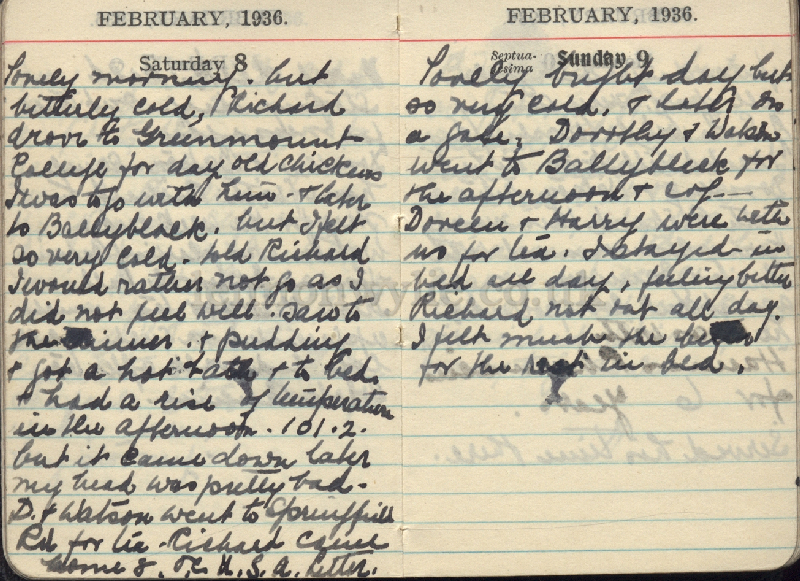 FEBRUARY, 1936.
Saturday 8
Lonely morning. but
bitterly cold, Richard
drove to Greenmount
College for day old chickens
I was to go with him - & later
to Ballyblack. but I felt
so very cold. told Richard
I would rather not go as I
did not feel well. saw to
the dinner. & pudding
& got a hot bath & to bed.
& had a rise of temperature
in the afternoon. 101.2.
but it came down later
my head was pretty bad.
D. & Watson went to Springhill
Rd for tea. Richard came
home 8. U.S.A. letter.
FEBRUARY, 1936.
Septua-
gesima Sunday 9
Lovely bright day but
so very cold. & later on
a gale, Dorothy & Watson
went to Ballyblack for
the afternoon &
Doreen & Harry were with
us for tea. I stayed in
bed all day, feeling better
Richard not out all day.
I felt much the better
for the rest in bed.